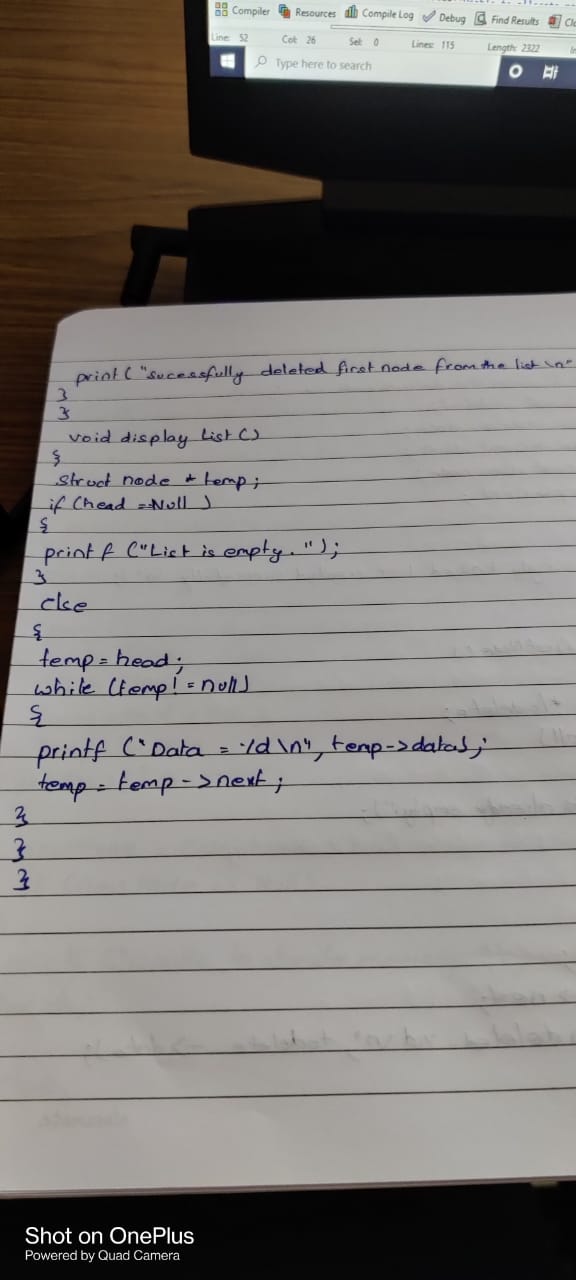 Compiler Resources Compile Log Debug Find Results Clo
Line: 52 Col: 26 Sel: 0 Lines: 115 Length: 2322 In
Type here to search
print ( "sucessfully deleted first node from the list \n"
}
}
void display List ()
{
struct node * temp;
if (head = Null )
{
print f ("List is empty. ");
}
else
{
temp = head;
while (temp! = null)
{
printf ("Data = %d \n", temp->data);
temp = temp -> next ;
}
}
}
Shot on OnePlus
Powered by Quad Camera